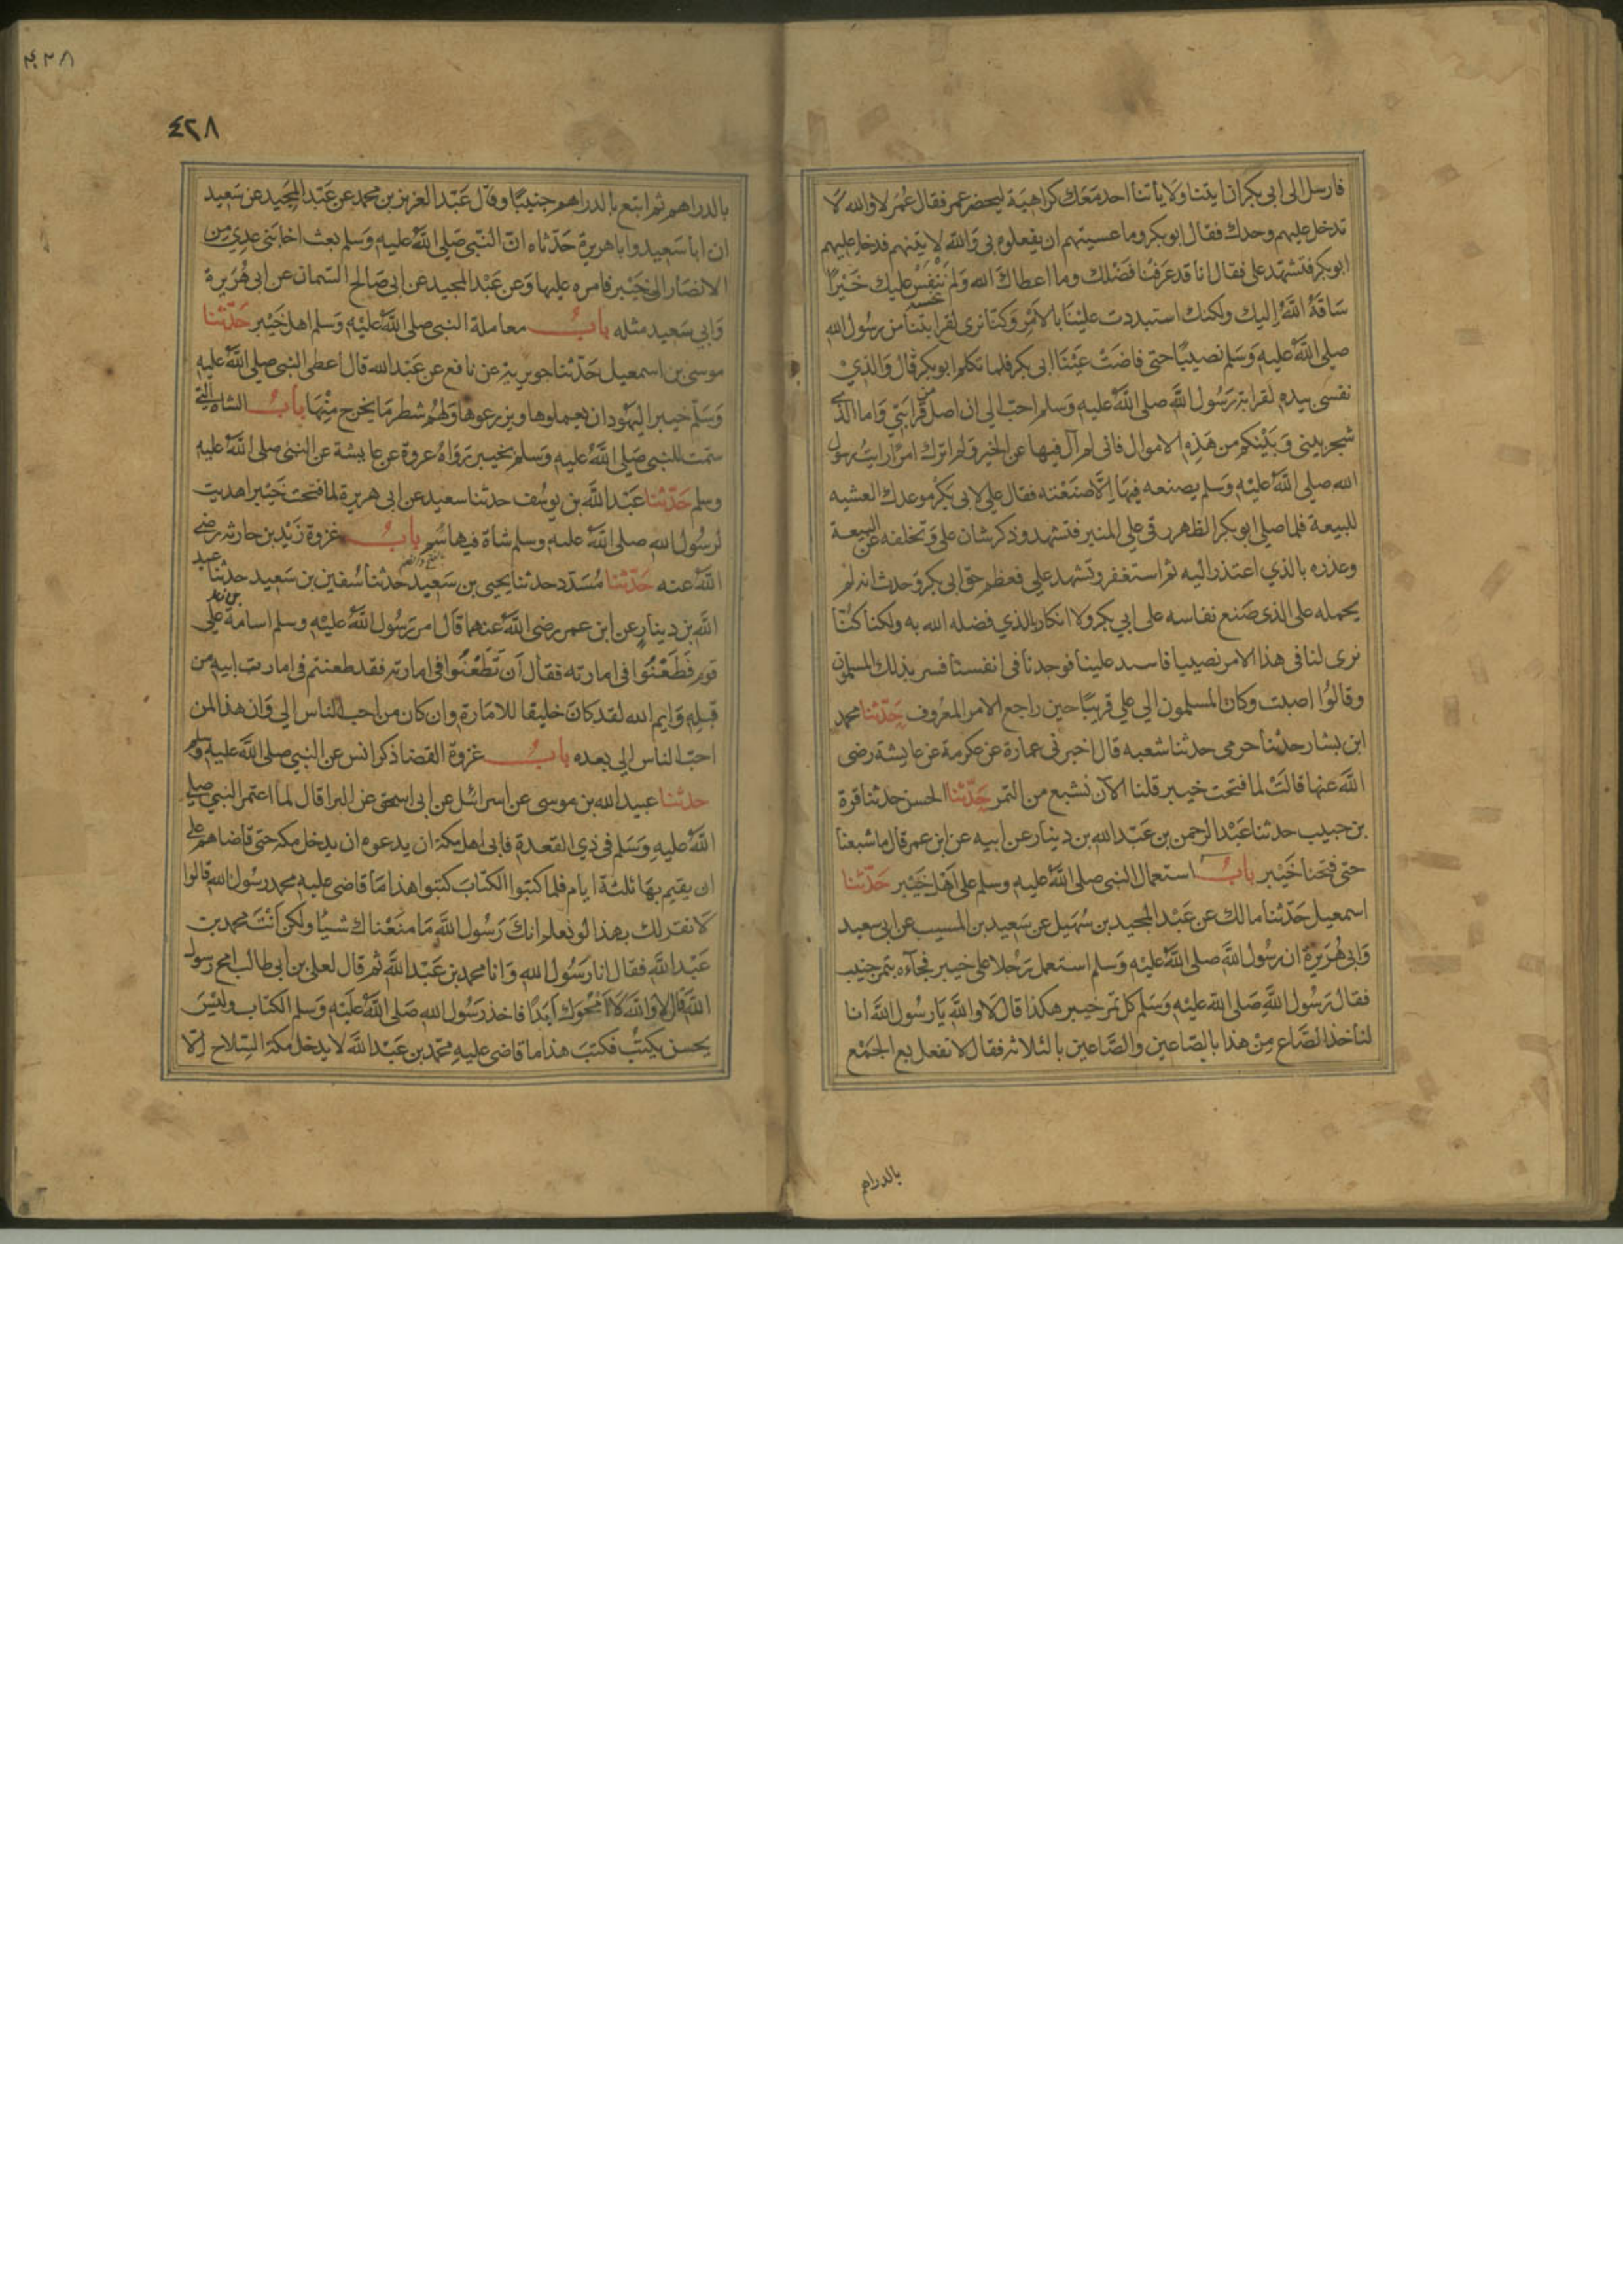 فارسل الى ابى بكر ان ايتنا ولا ياتنا احد معك كراهية ليحضر عمر فقال عمر لا والله لا
تدخل عليهم وحدك فقال ابو بكر وما عسيتهم ان يفعلوه بى والله لآتينهم فدخل عليهم
ابو بكر فتشهد على فقال انا قد عرفنا فضلك وما اعطاك الله ولم ننفس عليك خيرا
ساقه الله اليك ولكنك استبددت علينا بالامر وكنا نرى لقرابتنا من رسول الله
صلى الله عليه وسلم نصيبا حتى فاضت عينا ابى بكر فلما تكلم ابو بكر قال والذي
نفسى بيده لقرابة رسول الله صلى الله عليه وسلم احب الى ان اصل من قرابتي واما الذي
شجر بينى وبينكم من هذه الاموال فانى لم آل فيها عن الخير ولم اترك امرا رايت رسول
الله صلى الله عليه وسلم يصنعه فيها الا صنعته فقال على لابى بكر موعدك العشيه
للبيعة فلما صلى ابو بكر الظهر رقى على المنبر فتشهد وذكر شان على وتخلفه عن البيعة
وعذره بالذي اعتذر اليه ثم استغفر وتشهد على فعظم حق ابى بكر وحدث انه لم
يحمله على الذى صنع نفاسه على ابي بكر ولا انكار بالذي فضله الله به ولكنا كنا
نرى لنا فى هذا الامر نصيبا فاسبد علينا فوجدنا فى انفسنا فسر بذلك المسلمون
وقالوا اصبت وكان المسلمون الى على قريبا حين راجع الامر المعروف حدثنا محمد
ابن بشار حدثنا حرمى حدثنا شعبه قال اخبرنى عمارة عن عكرمة عن عايشة رضى
الله عنها قالت لما فتحت خيبر قلنا الآن نشبع من التمر حدثنا الحسن حدثنا قرة
بن حبيب حدثنا عبد الرحمن بن عبد الله بن دينار عن ابيه عن ابن عمر قال ما شبعنا
حتى فتحنا خيبر باب استعمال النبى صلى الله عليه وسلم على اهل خيبر حدثنا
اسمعيل حدثنا مالك عن عبد المجيد بن سهيل عن سعيد بن المسيب عن ابى سعيد
وابى هريرة ان رسول الله صلى الله عليه وسلم استعمل رجلا على خيبر فجآءه بتمر جنيب
فقال رسول الله صلى الله عليه وسلم كل تمر خيبر هكذا قال لا والله يا رسول الله انا
لناخذ الصاع من هذا بالصاعين والصاعين بالثلاثه فقال لا تفعل بع الجمع
بالدراهم
٤٢٨
٤٢٨
بالدراهم ثم ابتع بالدراهم جنيبا وقال عبد العزيز بن محمد عن عبد المجيد عن سعيد
ان ابا سعيد وابا هريرة حدثاه ان النبى صلى الله عليه وسلم بعث اخا بنى عدى من
الانصار الى خيبر فامره عليها وعن عبد المجيد عن ابى صالح السمان عن ابى هريرة
وابي سعيد مثله باب معاملة النبى صلى الله عليه وسلم اهل خيبر حدثنا
موسى بن اسمعيل حدثنا جويرية عن نافع عن عبد الله قال اعطى النبى صلى الله عليه
وسلم خيبر اليهود ان يعملوها ويزرعوها ولهم شطر ما يخرج منها باب الشاه التى
سمت للنبى صلى الله عليه وسلم بخيبر رواه عروة عن عايشة عن النبى صلى الله عليه
وسلم حدثنا عبد الله بن يوسف حدثنا سعيد عن ابى هريرة لما فتحت خيبر اهديت
لرسول الله صلى الله عليه وسلم شاة فيها سم باب غزوة زيد بن حارثه رضى
الله عنه حدثنا مسدد حدثنا يحيى بن سعيد حدثنا سفين بن سعيد حدثنا عبد
الله بن دينار عن ابن عمر رضى الله عنهما قال امر رسول الله عليه وسلم اسامة على
قوم فطعنوا فى امارته فقال ان تطعنوا فى امارته فقد طعنتم فى امارت ابيه من
قبله وايم الله لقد كان خليقا للامارة وان كان من احب الناس الى وان هذا لمن
احب الناس الى بعده باب غزوة القضا ذكر انس عن النبى صلى الله عليه وسلم
حدثنا عبيد الله بن موسى عن اسرائل عن ابى اسحق عن البرا قال لما اعتمر النبى صلى
الله عليه وسلم فى ذي القعدة فابى اهل مكة ان يدعوه ان يدخل مكه حتى قاضاهم على
ان يقيم بها ثلثة ايام فلما كتبوا الكتاب كتبوا هذا ما قاضى عليه محمد رسول الله قالوا
لا نقر لك بهذا لو نعلم انك رسول الله ما منعناك شيا ولكن انت محمد بن
عبد الله فقال انا رسول الله وانا محمد بن عبد الله ثم قال لعلى بن ابى طالب امح رسول
الله قال لا والله لا امحوك ابدا فاخذ رسول الله صلى الله عليه وسلم الكتاب وليس
يحسن يكتب فكتب هذا ما قاضى عليه محمد بن عبد الله لا يدخل مكة السلاح الا